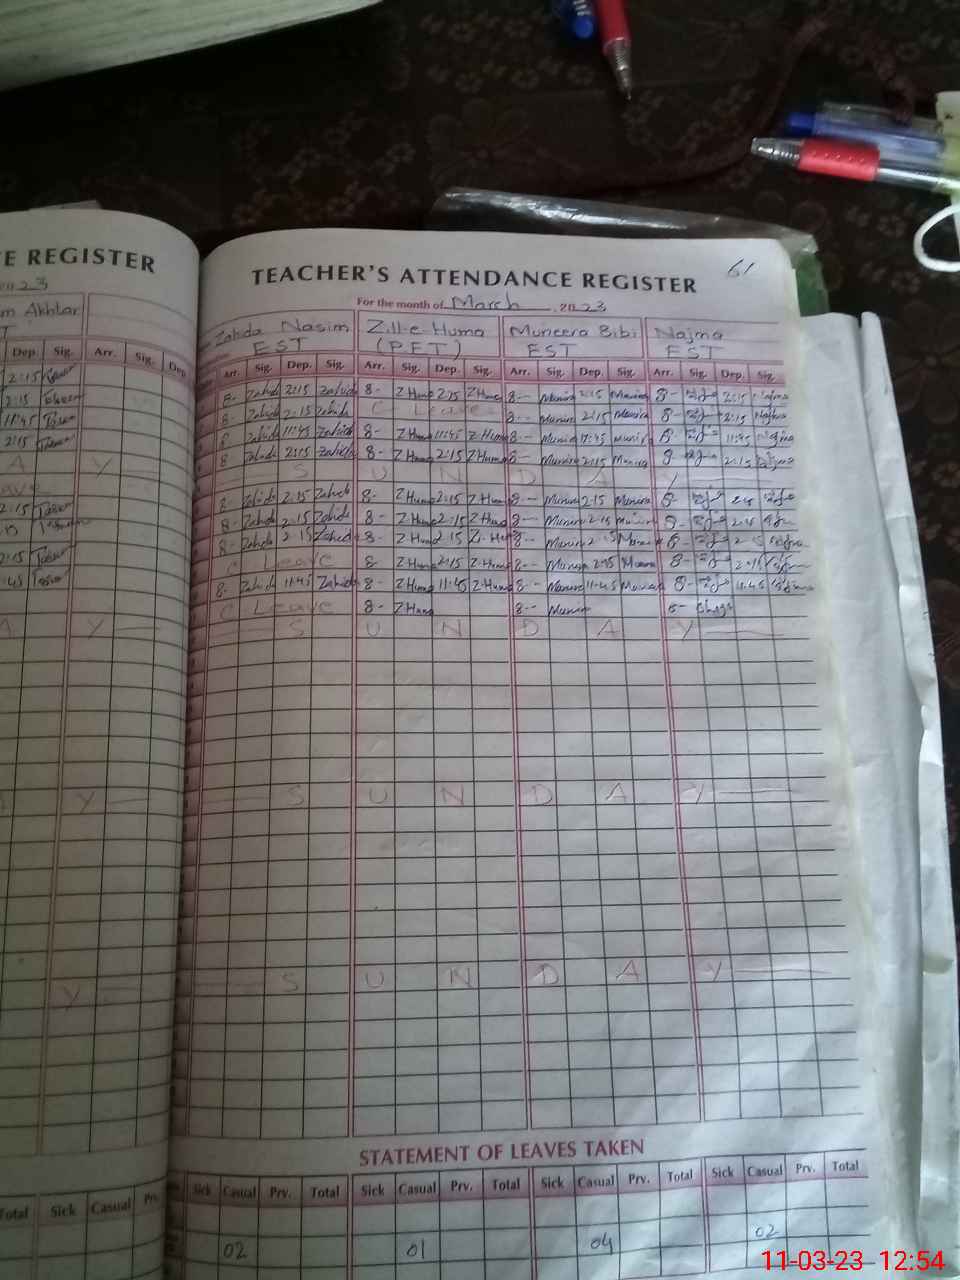 E REGISTER
2023
m Akhtar
Dep. Sig. Arr. Sig. Dep.
2:15
2:15
11:45
2:15
A Y
2:15
2:15
:45
A Y
Y
Y
Total Sick Casual Prv.
61
TEACHER'S ATTENDANCE REGISTER
For the month of March 2023
Zahda Nasim Zill-e-Huma Muneera Bibi Najma
EST (PET) EST EST
Arr. Sig. Dep. Sig. Arr. Sig. Dep. Sig. Arr. Sig. Dep. Sig. Arr. Sig. Dep. Sig.
8- Zahida 2:15 Zahida 8- Z Huma 2:15 Z Huma 8- Munira 2:15 Munira 8- 2:15 Najma
8- Zahida 2:15 Zahida C Leave 8- Munira 2:15 Munira 8- 2:15 Najma
8- Zahida 11:45 Zahida 8- Z Huma 11:45 Z Huma 8- Munira 11:45 Munira 8- 11:45 Najma
8- Zahida 2:15 Zahida 8- Z Huma 2:15 Z Huma 8- Munira 2:15 Munira 8- 2:15 Najma
S U N D A Y
8- Zahida 2:15 Zahida 8- Z Huma 2:15 Z Huma 8- Munira 2:15 Munira 8- 2:15
8- Zahida 2:15 Zahida 8- Z Huma 2:15 Z Huma 8- Munira 2:15 Munira 8- 2:15
8- Zahida 2:15 Zahida 8- Z Huma 2:15 Z Huma 8- Munira 2:15 Munira 8- 2:15 Najma
C Leave 8- Z Huma 2:15 Z Huma 8- Munira 2:15 Munira 8- 2:15
8- Zahida 11:45 Zahida 8- Z Huma 11:45 Z Huma 8- Munira 11:45 Munira 8- 11:45 Najma
C Leave 8- Z Huma 8- Munira 8-
S U N D A Y
S U N D A Y
S U N D A Y
STATEMENT OF LEAVES TAKEN
Sick Casual Prv. Total Sick Casual Prv. Total Sick Casual Prv. Total Sick Casual Prv. Total
02 01 04 02
11-03-23 12:54